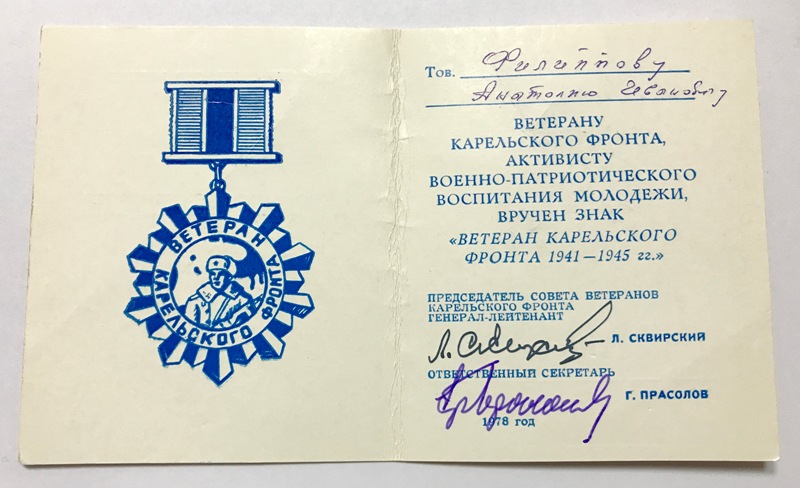 ВЕТЕРАН
КАРЕЛЬСКОГО ФРОНТА
Тов. Филиппову
Анатолию Ивановичу
ВЕТЕРАНУ
КАРЕЛЬСКОГО ФРОНТА,
АКТИВИСТУ
ВОЕННО-ПАТРИОТИЧЕСКОГО
ВОСПИТАНИЯ МОЛОДЕЖИ,
ВРУЧЕН ЗНАК
«ВЕТЕРАН КАРЕЛЬСКОГО
ФРОНТА 1941—1945 гг.»
ПРЕДСЕДАТЕЛЬ СОВЕТА ВЕТЕРАНОВ
КАРЕЛЬСКОГО ФРОНТА
ГЕНЕРАЛ-ЛЕЙТЕНАНТ
Л. СКВИРСКИЙ
ОТВЕТСТВЕННЫЙ СЕКРЕТАРЬ
Г. ПРАСОЛОВ
1978 год